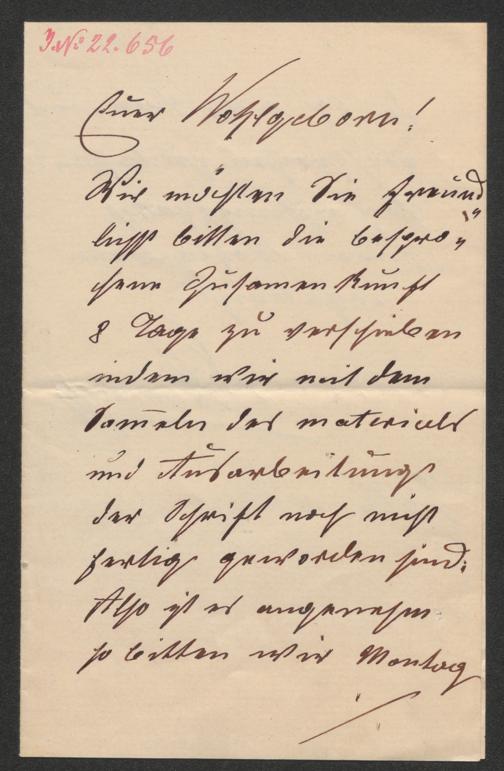 J.No 22.656
Euer Wohlgeborn!
Wir möchten Sie freund
lichst bitten die bespro„
chene Zusamenkunft
8 Tage zu verschieben
indem wir mit dem
Sam̅eln des materials
und Ausarbeitung
der Schrift noch nicht
fertig geworden sind:
Also ist es angenehm
so bitten wir Montag